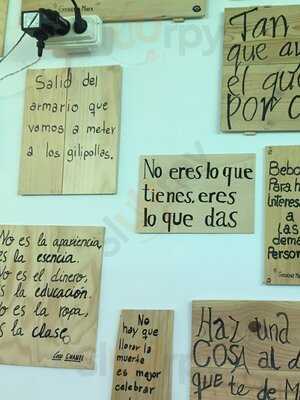 Groucho Marx
Tan
que a
el qu
por c
Salid del
armario que
vamos a meter
a los gilipollas.
No eres lo que
tienes, eres
lo que das
Bebo
Para h
interes
a
las
dema
Person
Groucho Marx
No es la apariencia,
es la esencia.
No es el dinero,
es la educación.
No es la ropa,
es la clase.
Coco CHANEL
No
hay que
llorar la
muerte
es mejor
celebrar
Haz una
COSA al d
que te de M